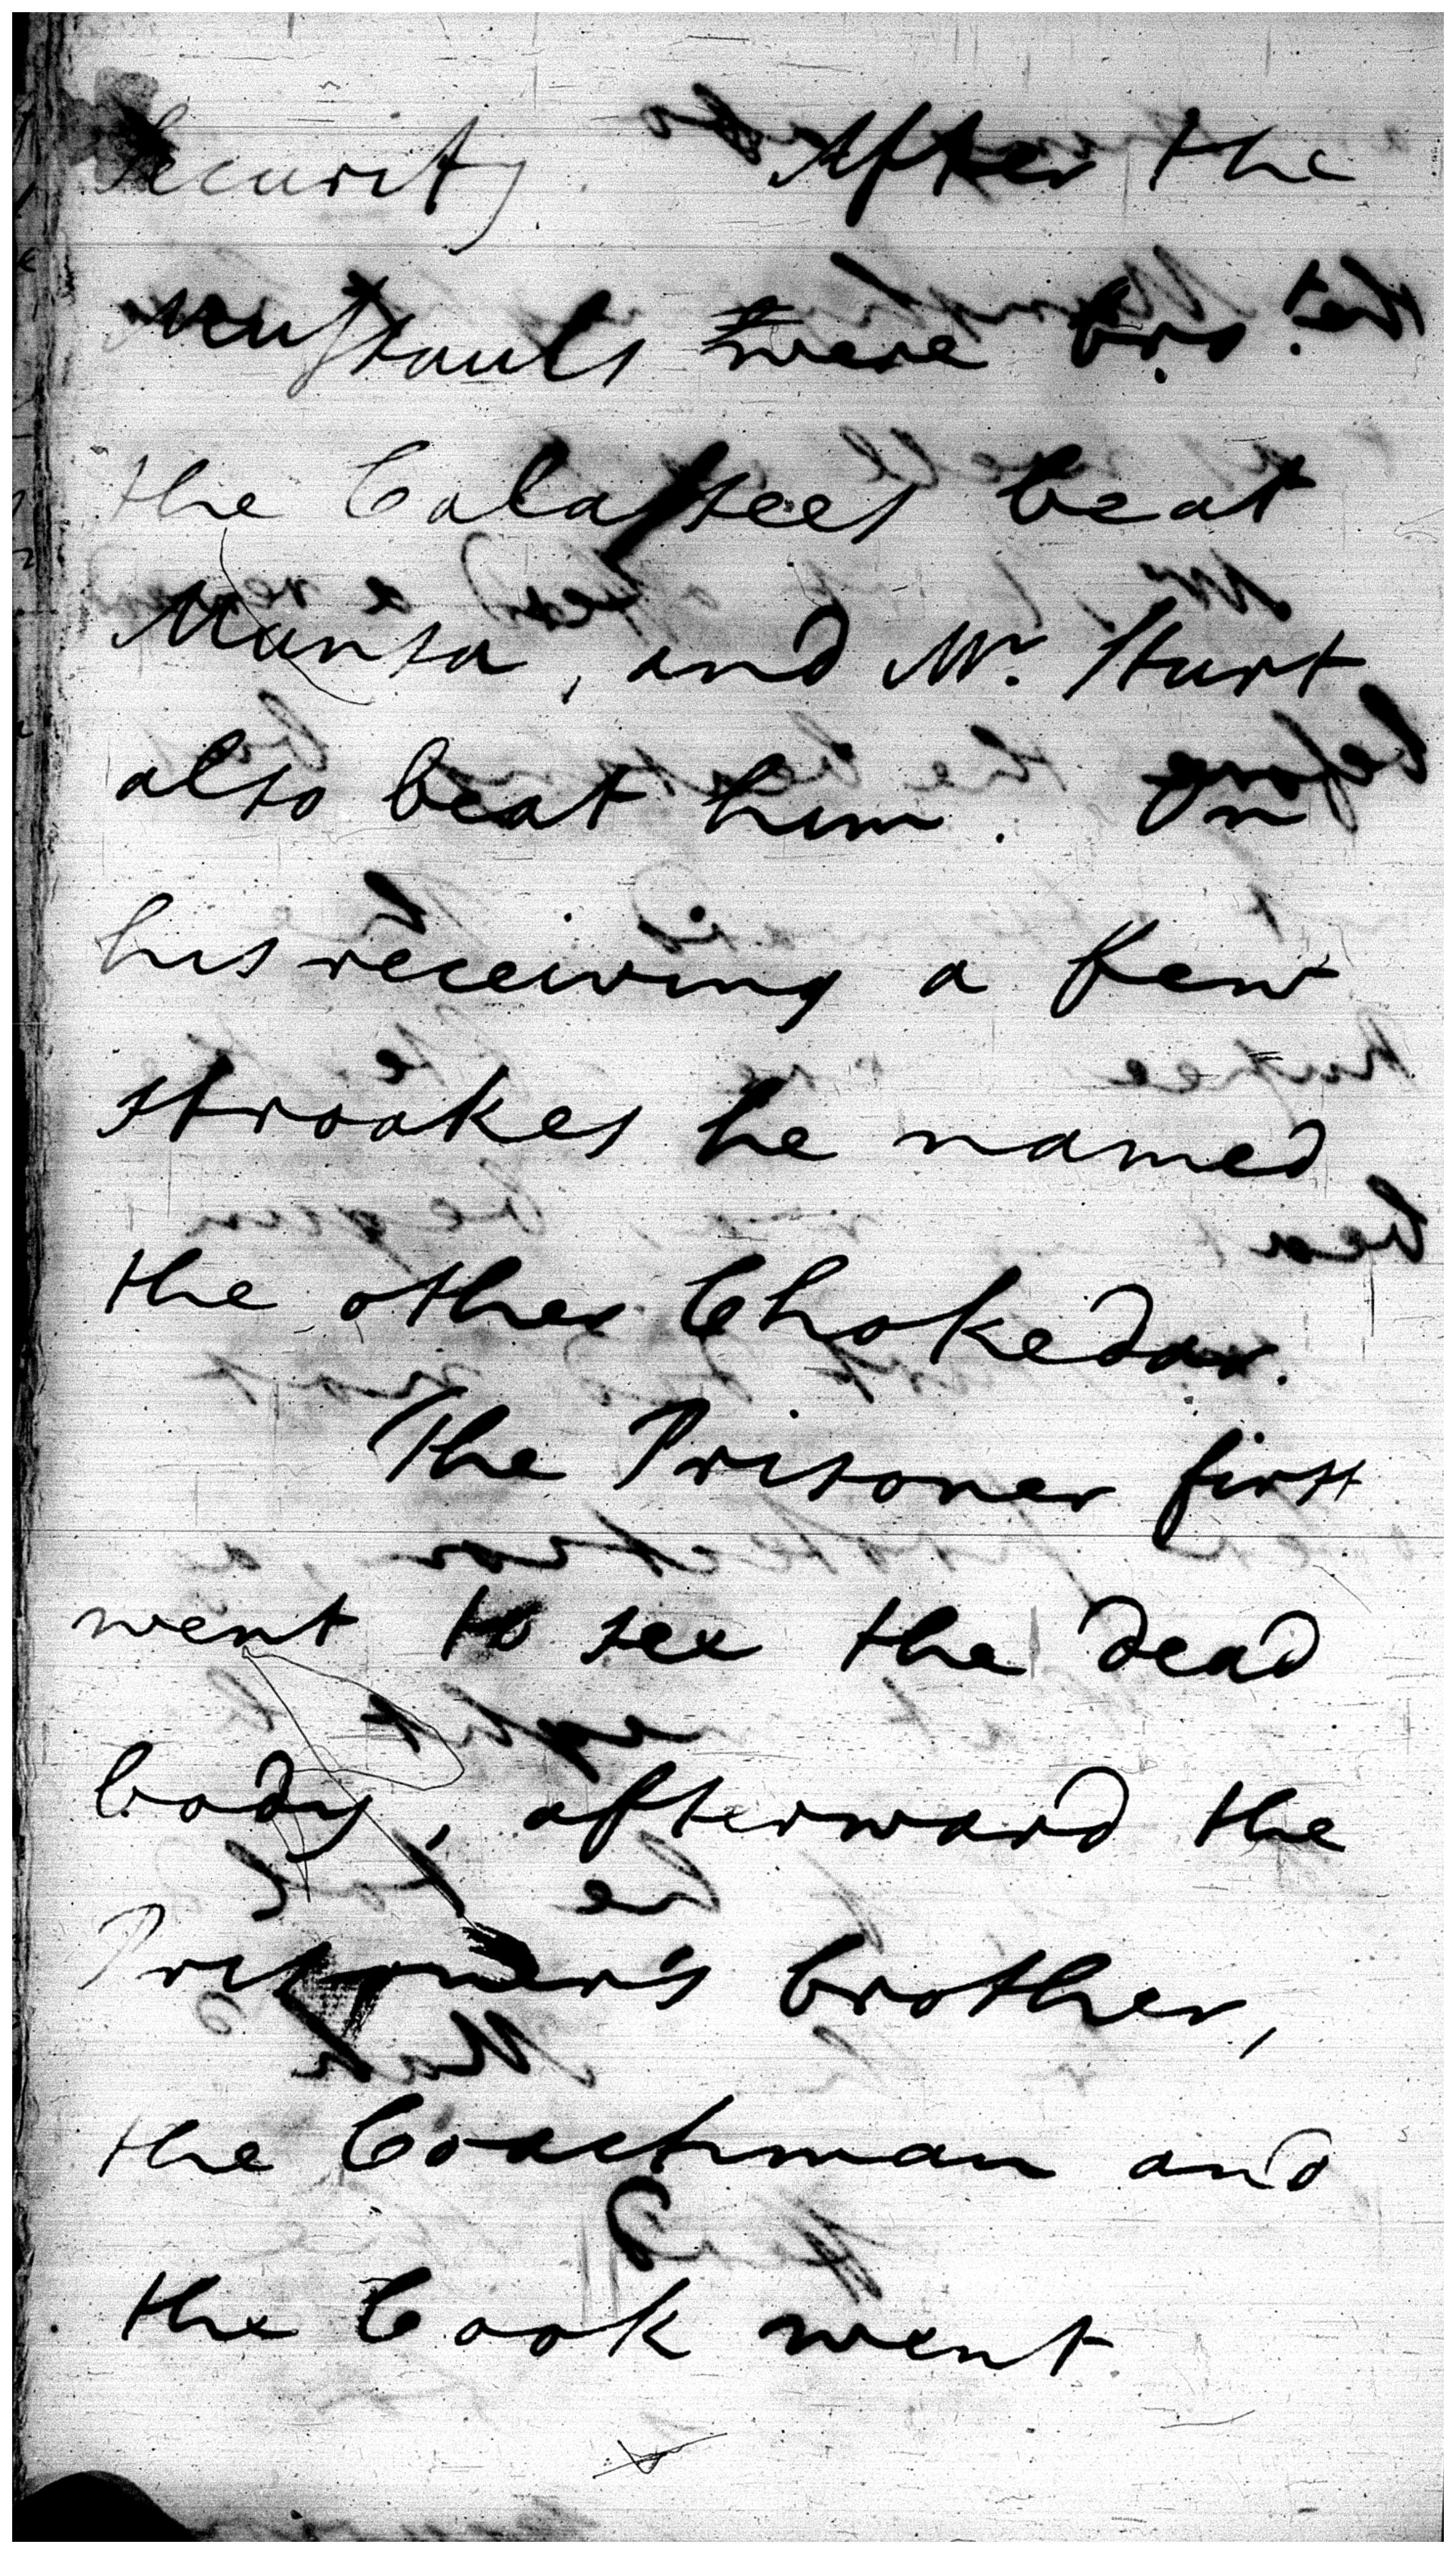 Security. After the
Mustauls were bro.t
the Calassees beat
Mansa, and Mr. Sturt
also beat him. On
his receiving a few
stroakes he named
the other Chokedar.
The Prisoner first
went to see the dead
body, afterward the
Prisoner's brother,
the Coachman and
the Cook went